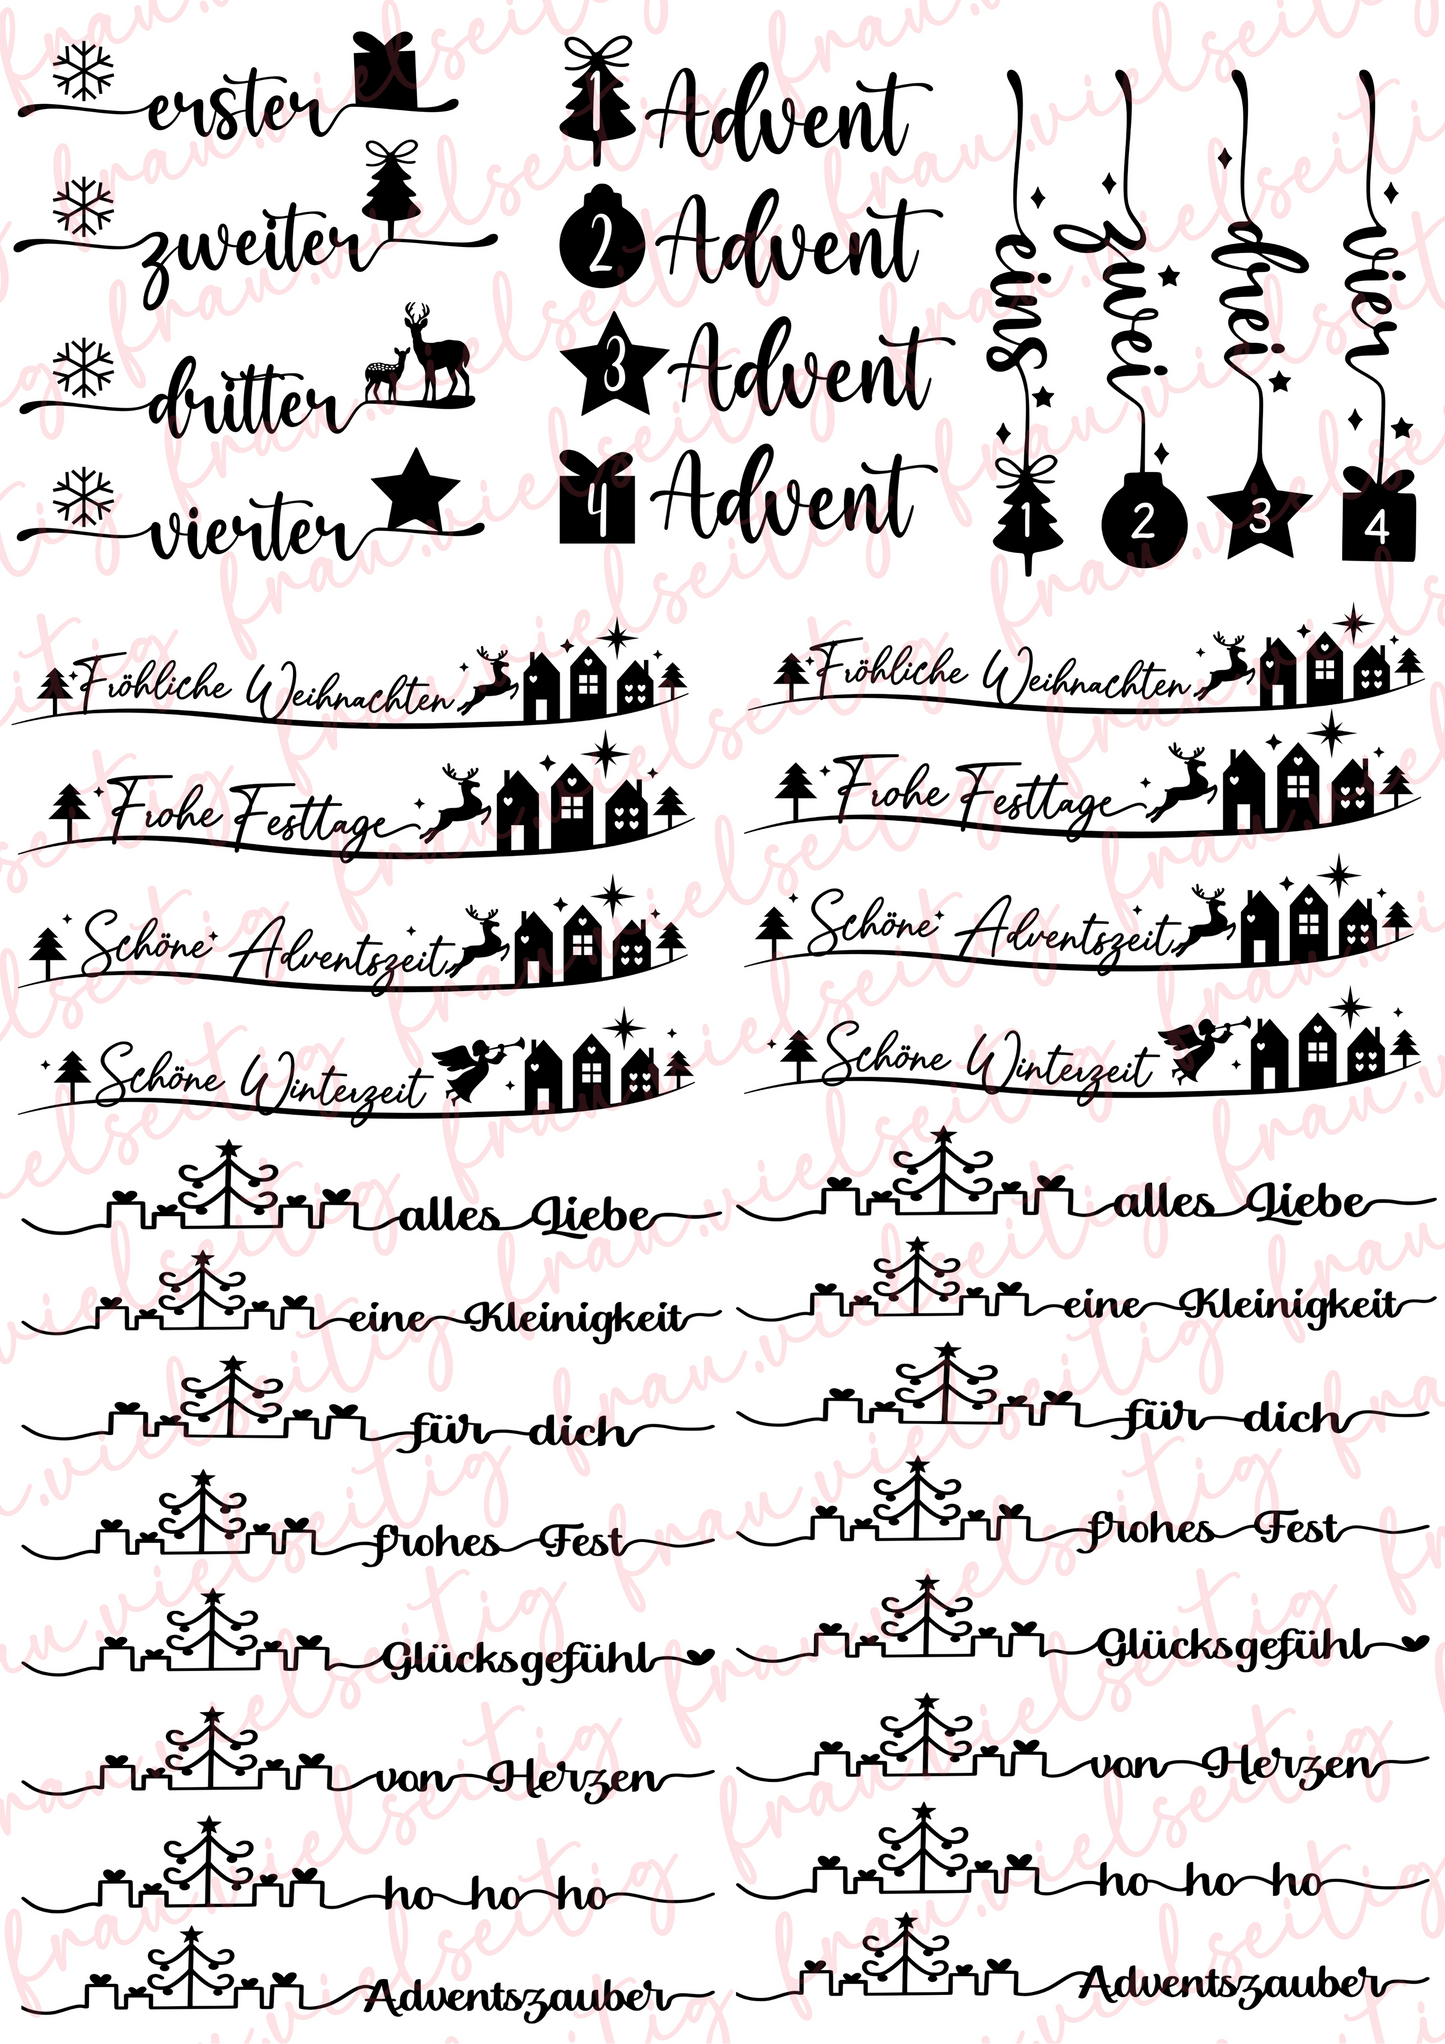 erster
zweiter
dritter
vierter
1 Advent
2 Advent
3 Advent
4 Advent
eins
zwei
drei
vier
1
2
3
4
Fröhliche Weihnachten
Fröhliche Weihnachten
Frohe Festtage
Frohe Festtage
Schöne Adventszeit
Schöne Adventszeit
Schöne Winterzeit
Schöne Winterzeit
alles Liebe
alles Liebe
eine Kleinigkeit
eine Kleinigkeit
für dich
für dich
frohes Fest
frohes Fest
Glücksgefühl
Glücksgefühl
von Herzen
von Herzen
ho ho ho
ho ho ho
Adventszauber
Adventszauber
frau.vielseitig